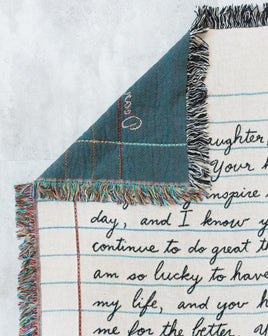 aughter,
Your h
inspire
day, and I know y
continue to do great t
am so lucky to have
my life, and you h
me for the better, a